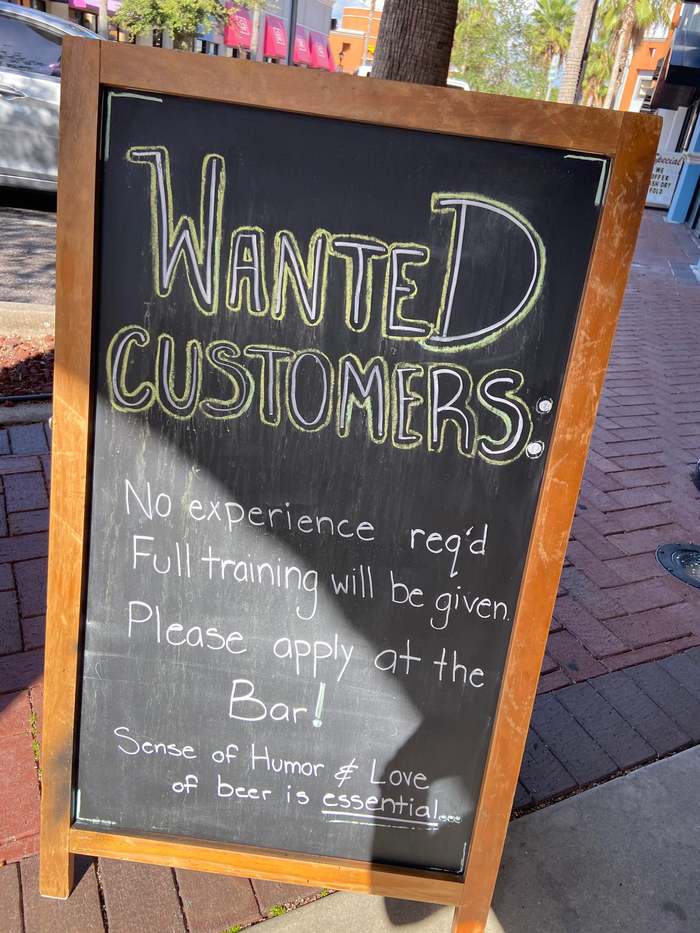 WANTED
CUSTOMERS:
No experience req'd
Full training will be given.
Please apply at the
Bar!
Sense of Humor & Love
of beer is essential...
Special
WE
OFFER